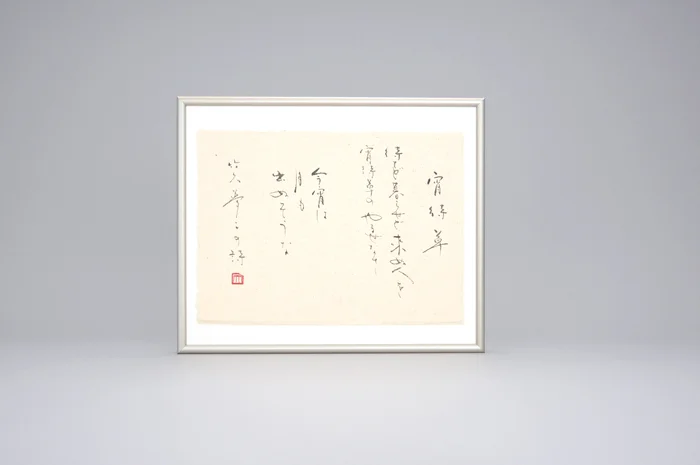 宵待草
待てど暮らせど来ぬ人を
宵待草のやるせなさ
今宵は
月も
出ぬさうな
竹久夢二の詩